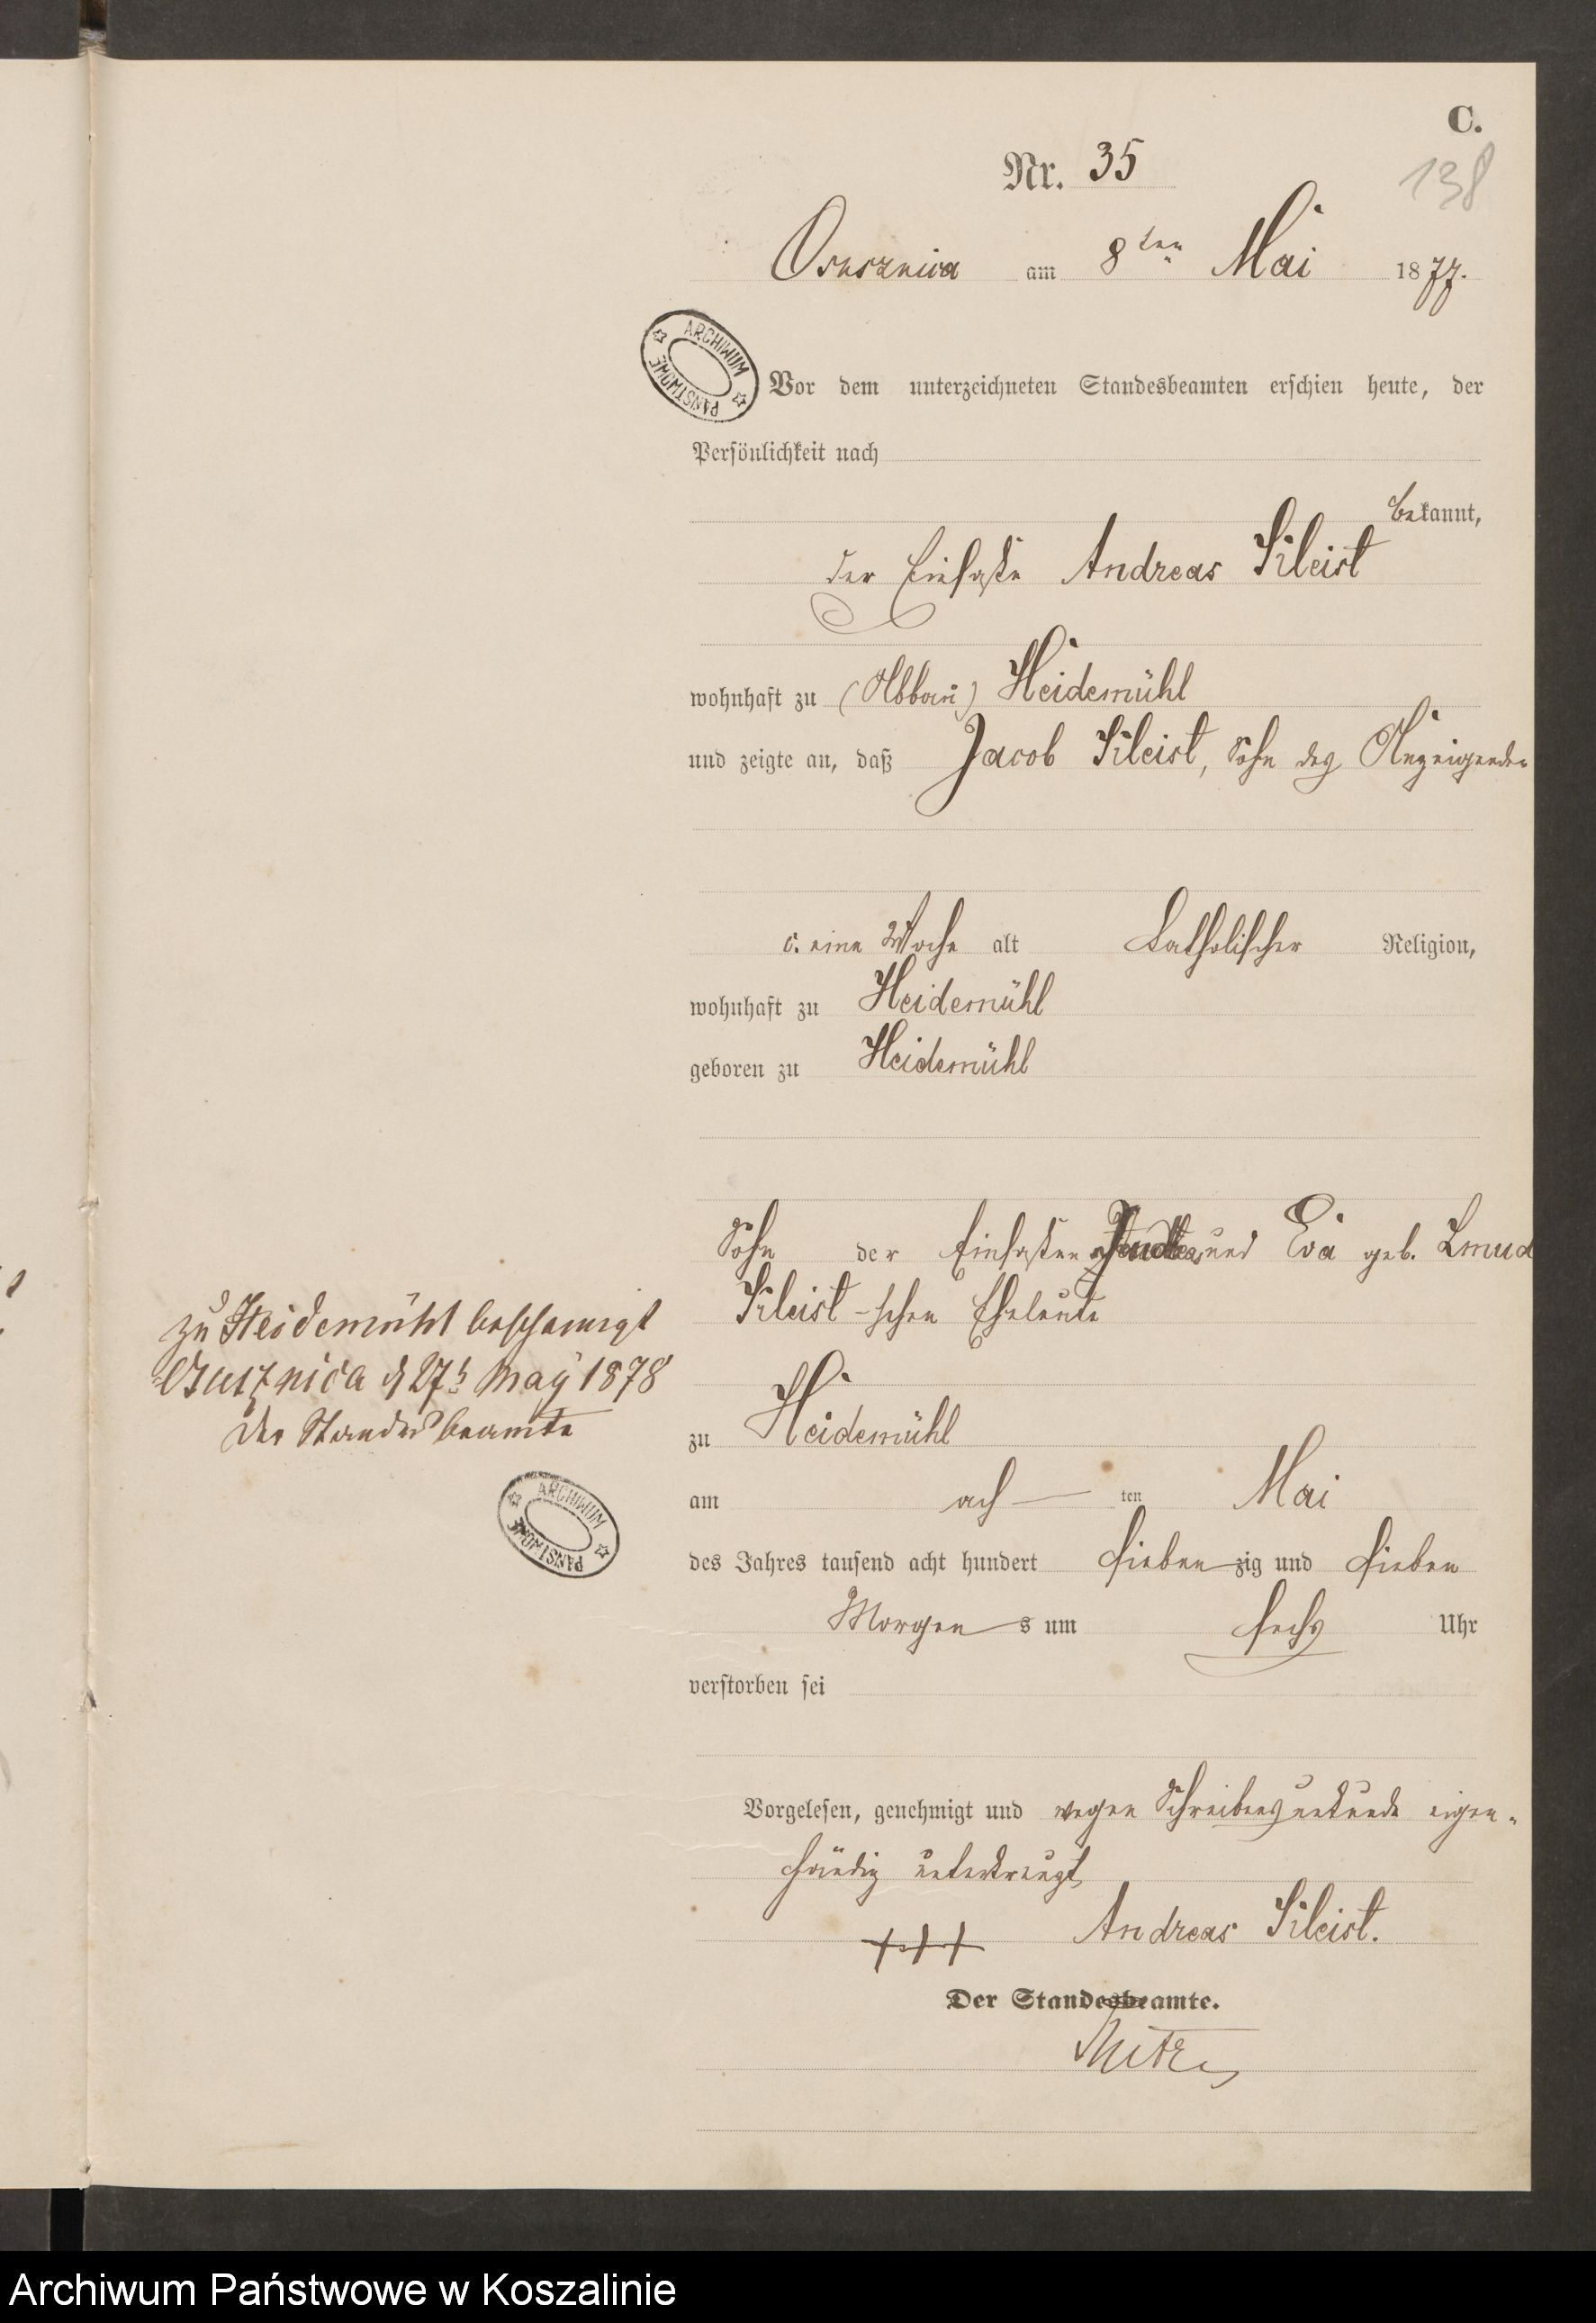 C.
Nr. 35
138
Osusznica am 8ten Mai 1877.
ARCHIWUM PAŃSTWOWE
Vor dem unterzeichneten Standesbeamten erschien heute, der
Persönlichkeit nach
bekannt,
der Einsaße Andreas Kleist
wohnhaft zu (Abbau) Heidemühl
und zeigte an, daß Jacob Kleist, Sohn des Anzeigenden
c. eine Woche alt katholischer Religion,
wohnhaft zu Heidemühl
geboren zu Heidemühl
Sohn der Einsaßen und Eva geb. Zmud
Kleist-schen Eheleute
zu Heidemühl
am ach ten Mai
des Jahres tausend acht hundert siebenzig und sieben
Morgens um sechs Uhr
verstorben sei
Vorgelesen, genehmigt und wegen Schreibensunkunde eigen-
händig unterkreuzt
+++ Andreas Kleist.
Der Standesbeamte.
zu Heidemühl
27 May 1878
Der Standesbeamte
ARCHIWUM PAŃSTWOWE
Archiwum Państwowe w Koszalinie